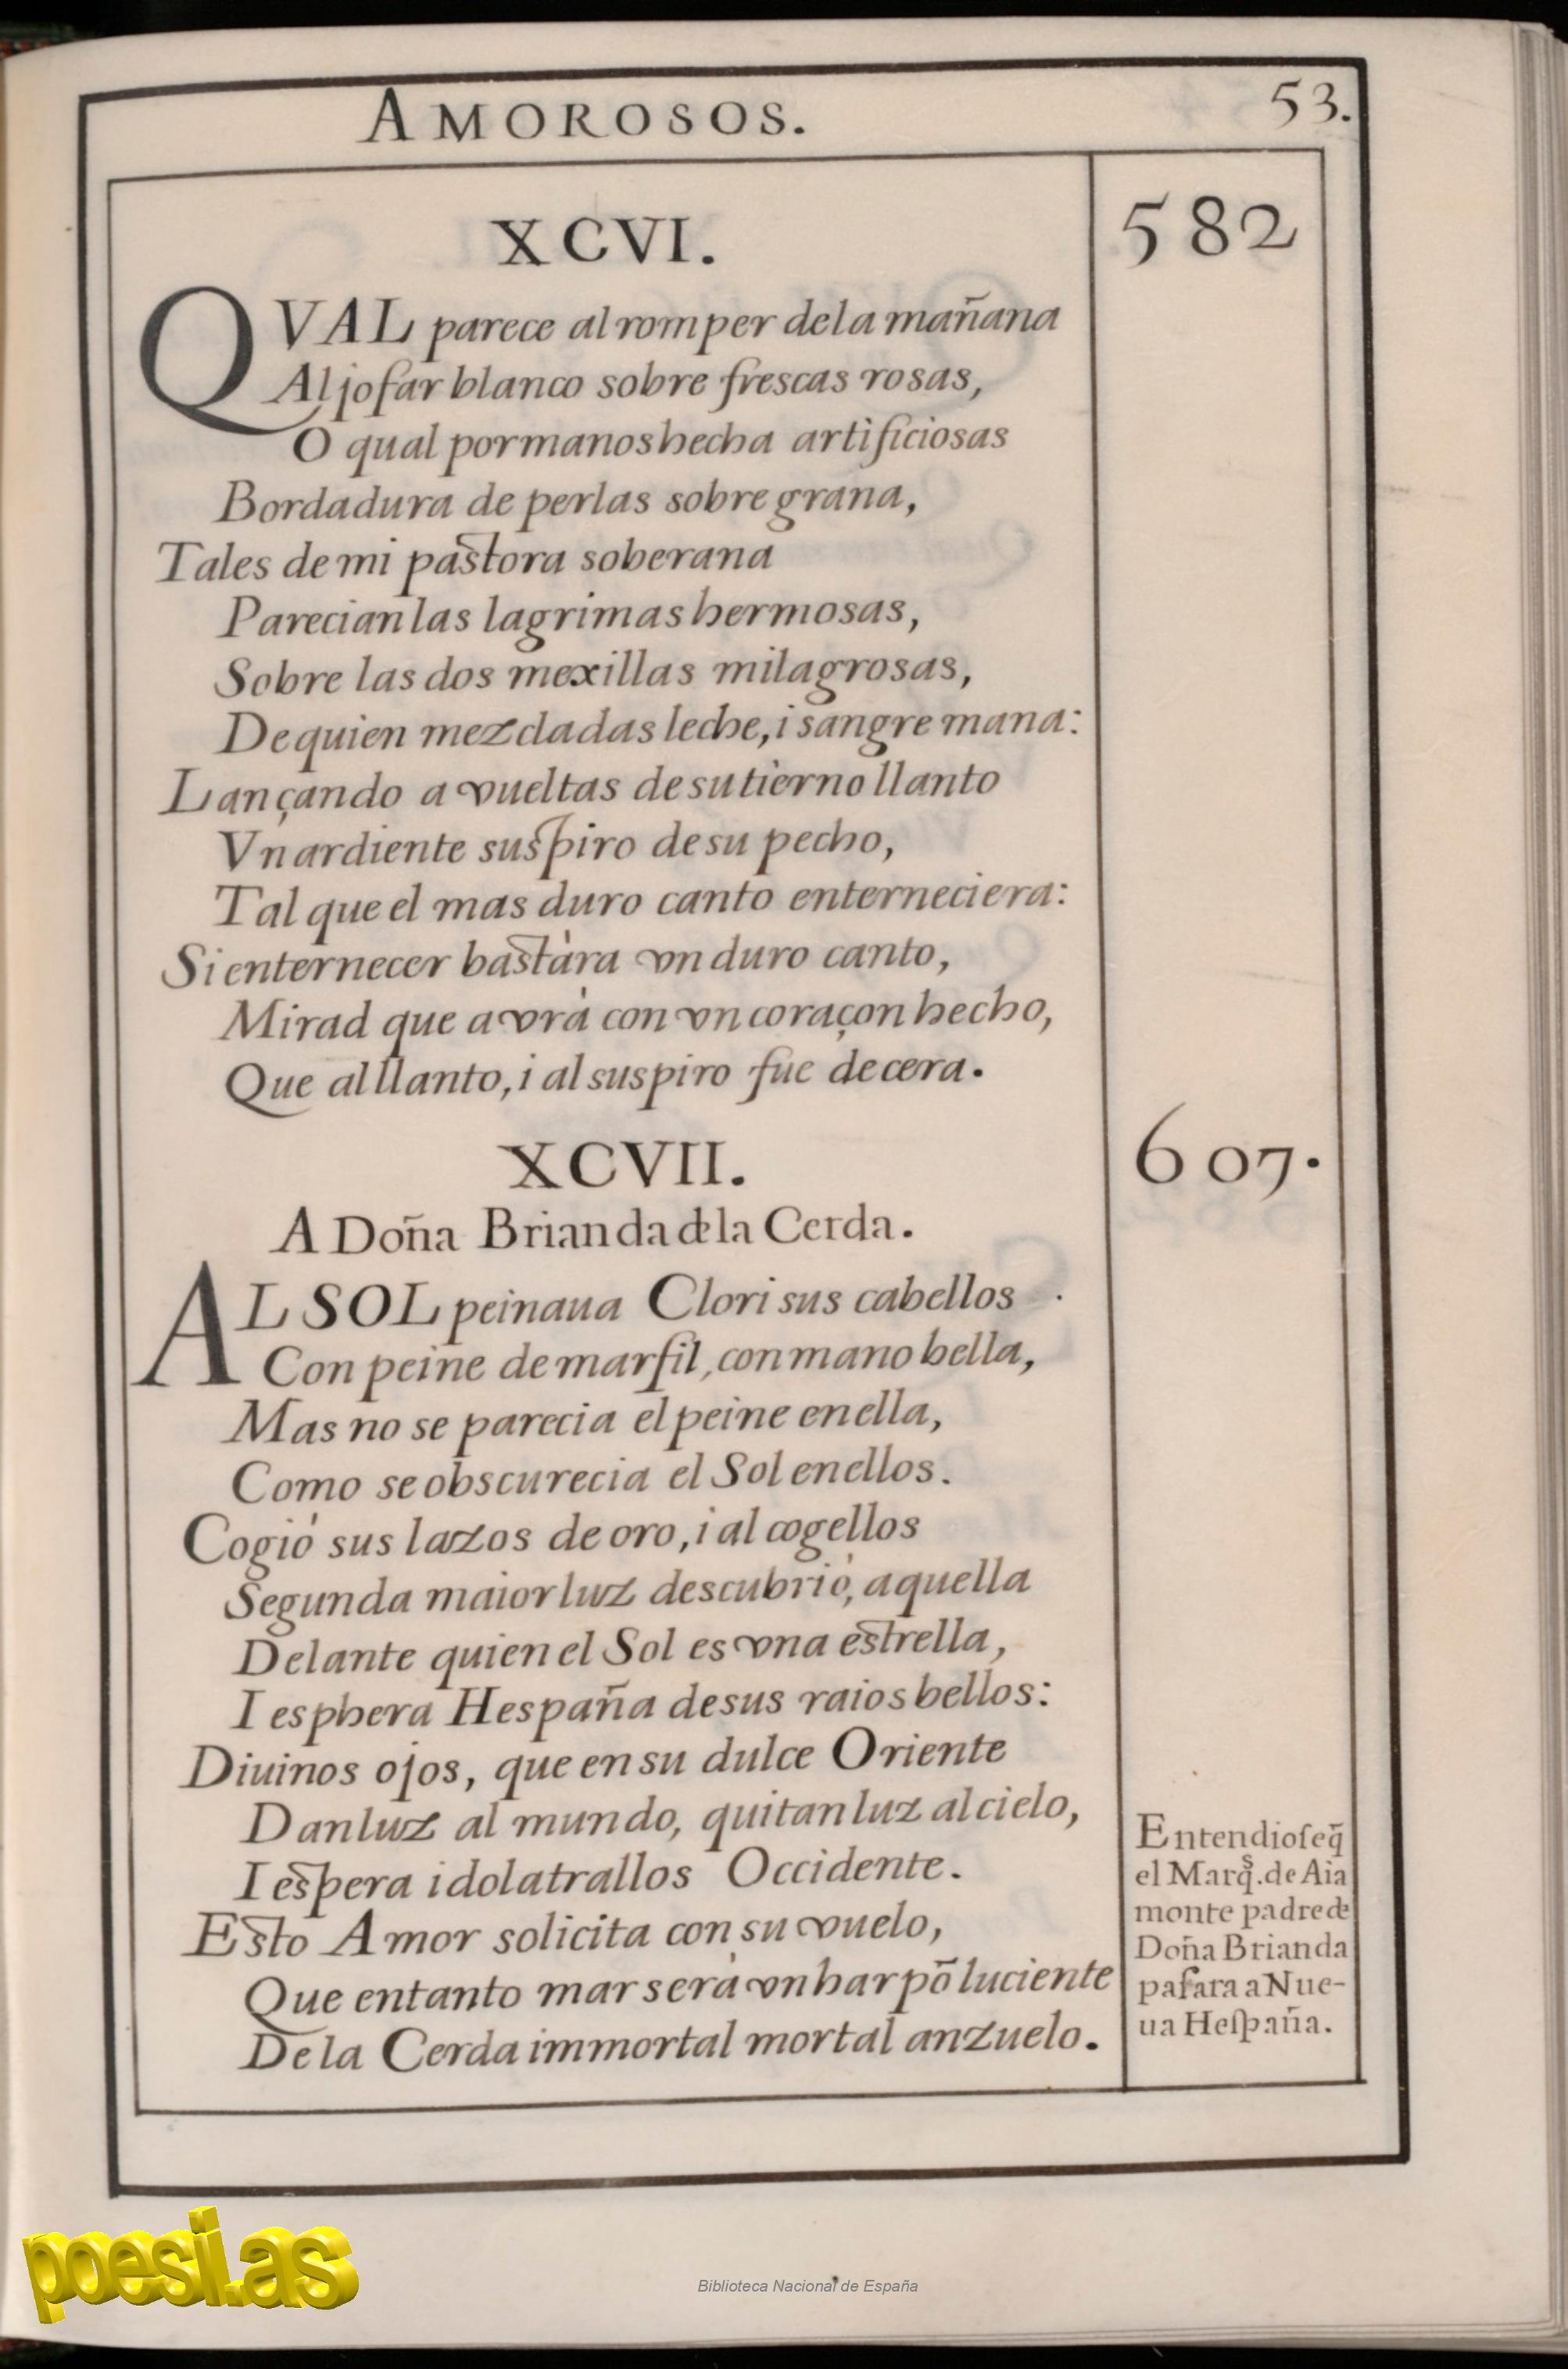 AMOROSOS.
53.
XCVI.
582
QVAL parece al romper de la mañana
Aljofar blanco sobre frescas rosas,
O qual por manos hecha artificiosas
Bordadura de perlas sobre grana,
Tales de mi pastora soberana
Parecian las lagrimas hermosas,
Sobre las dos mexillas milagrosas,
De quien mezcladas leche, i sangre mana:
Lançando a vueltas de su tierno llanto
Vn ardiente suspiro de su pecho,
Tal que el mas duro canto enterneciera:
Si enternecer bastàra vn duro canto,
Mirad que avrà con vn coraçon hecho,
Que al llanto, i al suspiro fue de cera.
XCVII.
607.
A Doña Brianda de la Cerda.
AL SOL peinaua Clori sus cabellos
Con peine de marfil, con mano bella,
Mas no se parecia el peine en ella,
Como se obscurecia el Sol en ellos.
Cogiò sus lazos de oro, i al cogellos
Segunda maior luz descubriò, aquella
Delante quien el Sol es vna estrella,
I esphera Hespaña de sus raios bellos:
Diuinos ojos, que en su dulce Oriente
Dan luz al mundo, quitan luz al cielo,
I espera idolatrallos Occidente.
Esto Amor solicita con su vuelo,
Que en tanto mar serà vn harpõ luciente
De la Cerda immortal mortal anzuelo.
Entendioſe q̃
el Marq̃s. de Aia
monte padre de
Doña Brianda
paſara a Nue-
ua Heſpaña.
poesi.as
Biblioteca Nacional de España